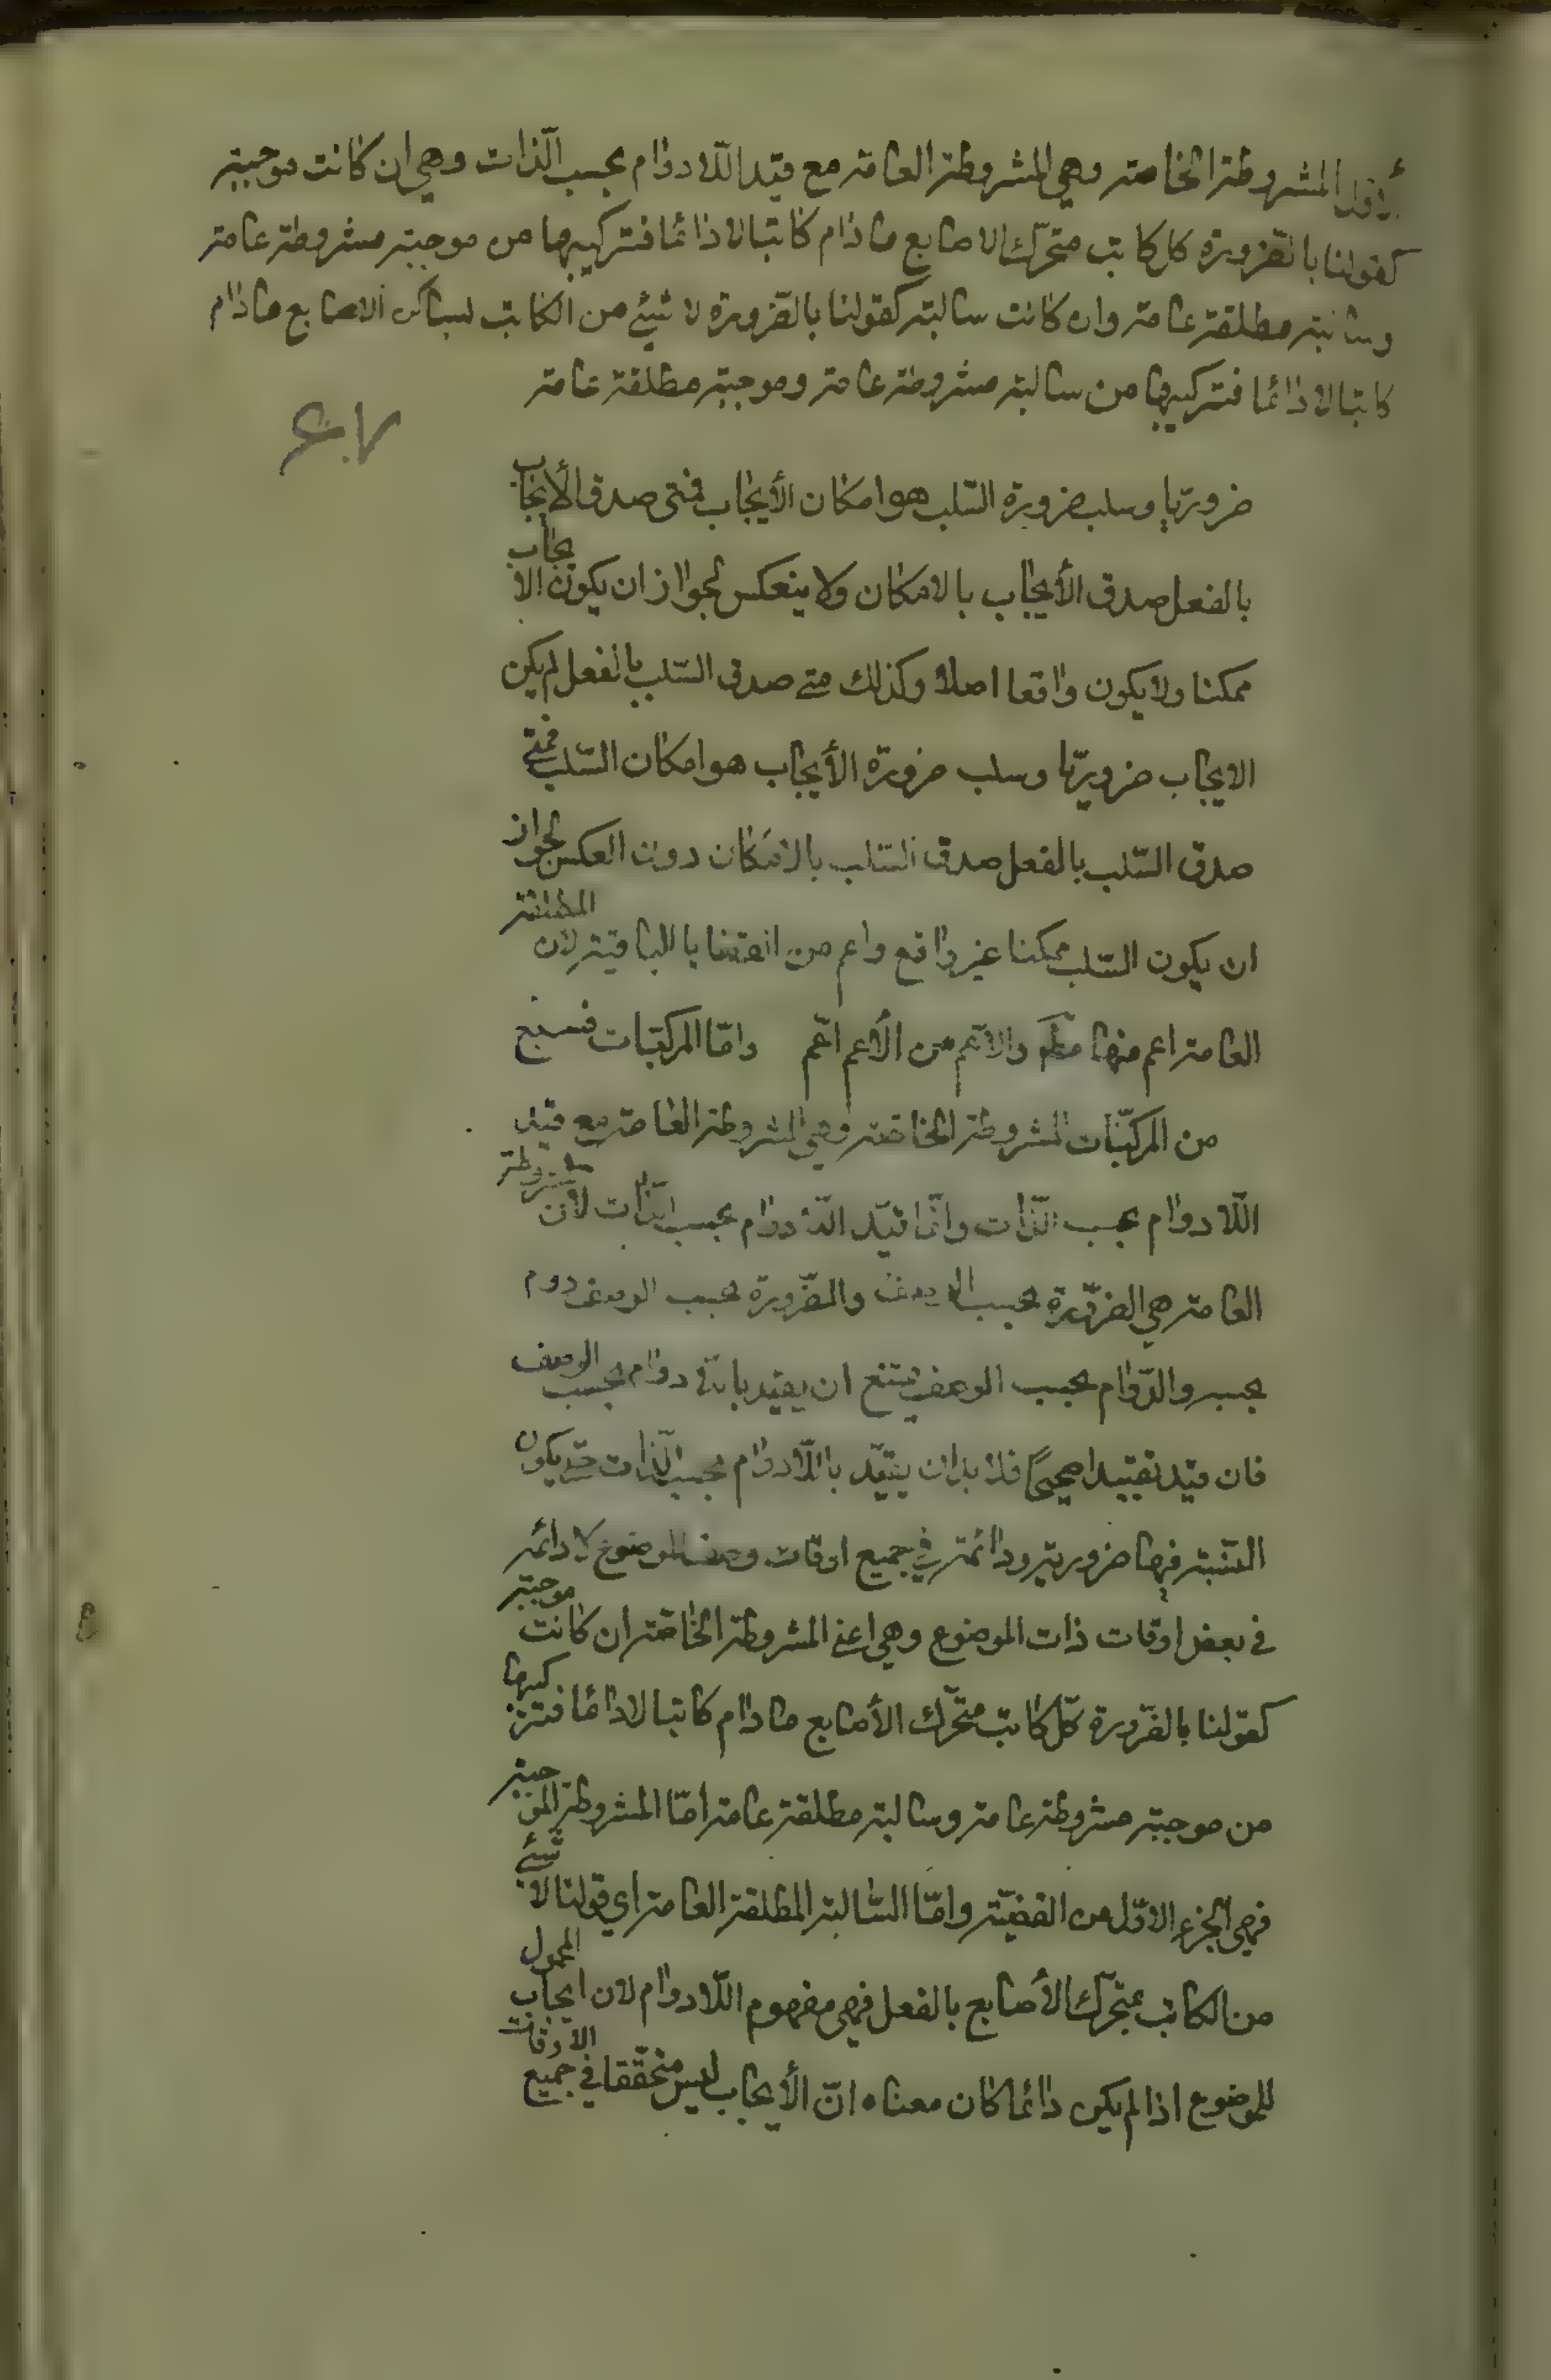 الأولى المشروطة الخاصة وهي المشروطة العامة مع قيد اللادوام بحسب الذات وهي ان كانت موجبة
كقولنا بالضرورة كل كاتب متحرك الاصابع مادام كاتبا لا دائما فتركيبها من موجبة مشروطة عامة
وسالبة مطلقة عامة وان كانت سالبة كقولنا بالضرورة لا شيء من الكاتب بساكن الاصابع مادام
كاتبا لا دائما فتركيبها من سالبة مشروطة عامة وموجبة مطلقة عامة
ضروريا وسلب ضرورة السّلب هو امكان الأيجاب فمتى صدق الأيجاب
بالفعل صدق الأيجاب بالامكان ولا ينعكس لجواز ان يكون الايجاب
ممكنا ولا يكون واقعا اصلا وكذلك متى صدق السّلب بالفعل لم يكن
الايجاب ضروريّا وسلب ضرورة الأيجاب هو امكان السّلب فمتى
صدق السّلب بالفعل صدق السّلب بالامكان دون العكس لجواز
ان يكون السّلب ممكنا غير واقع واعم من القضايا الباقية لان المطلقة
العامة اعم منها مطلقا والاعم من الأعم اعّم وامّا المركبّات فسبع
من المركبّات المشروطة الخاصّة وهي المشروطة العامة مع قيد
اللّا دوام بحسب الذّات وانّما قيّد اللّا دوام بحسب الذّات لأن المشروطة
العامة هي الضرّورة بحسب الوصف والضّرورة بحسب الوصف دوام
بحسبه والدّوام بحسب الوصف يمتنع ان يقيد باللّا دوام بحسب الوصف
فان قيّد تقييدا صحيحًا فلا بد ان يقيّد باللّا دوام بحسب الذّات حتى يكون
النّسبة فيها ضرورية ودائمة في جميع اوقات وصف الموضوع لا دائمة
في بعض اوقات ذات الموضوع وهي اعني المشروطة الخاصّة ان كانت موجبة
كقولنا بالضّرورة كلّ كاتب متحّرك الأصابع مادام كاتبا لا دائما فتركيبها
من موجبة مشروطة عامة وسالبة مطلقة عامة امّا المشروطة الموجبة
فهي الجزء الاوّل من القضيّة وامّا السّالبة المطلقة العامة اي قولنا لا شيء
من الكاتب بمتحّرك الأصابع بالفعل فهي مفهوم اللّا دوام لان ايجاب المحمول
للموضوع اذا لم يكن دائما كان معناه انّ الأيجاب ليس متحقّقا في جميع الاوقات